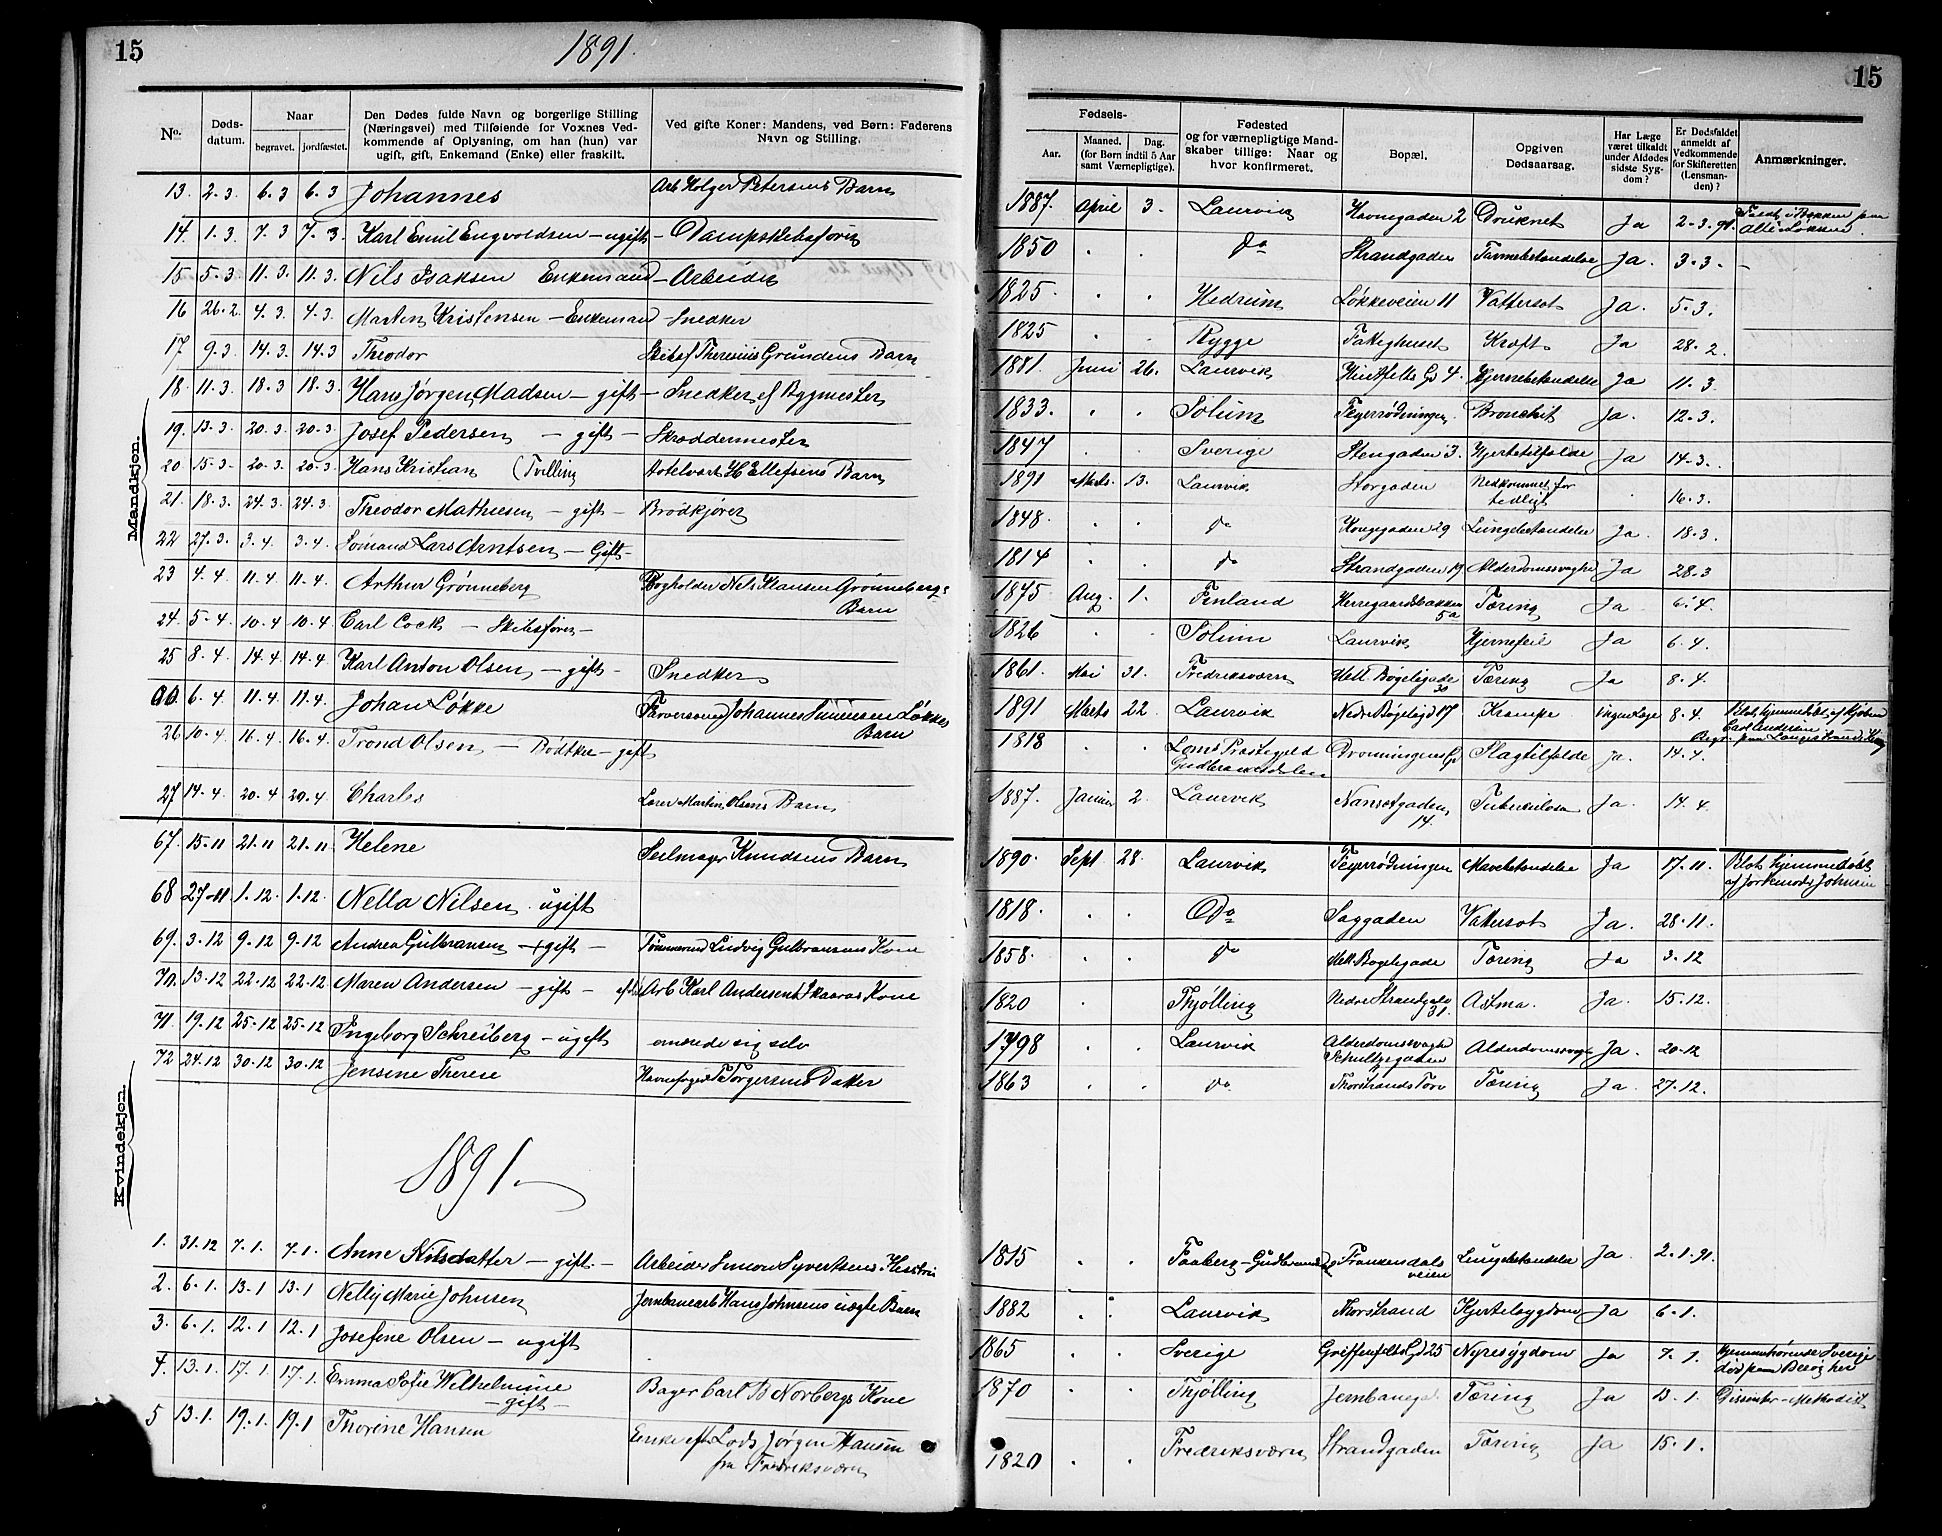 15
1891.
15
No.
Døds-
datum.
Naar
begravet.
jordfæstet.
Den Dødes fulde Navn og borgerlige Stilling
(Næringsvei) med Tilføiende for Voxnes Ved-
kommende af Oplysning, om han (hun) var
ugift, gift, Enkemand (Enke) eller fraskilt.
Ved gifte Koner: Mandens, ved Børn: Faderens
Navn og Stilling.
Fødsels-
Aar.
Maaned.
Dag.
(for Børn indtil 5 Aar
samt Værnepligtige).
Fødested
og for værnepligtige Mand-
skaber tillige: Naar og
hvor konfirmeret.
Bopæl.
Opgiven
Dødsaarsag.
Har Læge
været tilkaldt
under Afdødes
sidste Syg-
dom?
Er Dødsfaldet
anmeldt af
Vedkommende
for Skifteretten
(Lensman-
den)?
Anmærkninger.
Mandkjøn.
13. 2.3. 6.3 6.3 Johannes Arb Holger Petersens Barn 1887. April 3. Laurvik Havnegaden 2 Druknet Ja 2.3.91.
14. 1.3 7.3 7.3 Karl Emil Engvoldsen - ugift - Dampskibsfører 1850 . . do Strandgaden Ja. 3.3.
15 5.3. 11.3. 11.3. Nils Isaksen Enkemand - Arbeider 1825. . . Hedrum Løkkeveien 11 Vattersot Ja. 5.3.
16 26.2. 4.3. 4.3. Martin Kristensen - Enkemand - Snedker 1825 . . Rygge Fattighuset Kræft Ja 28.2.
17 9.3 14.3. 14.3 Theodor Skibsf Theresius Grundens Barn 1881. Juni 26. Laurvik Hjernebetændelse Ja 11.3.
18. 11.3. 18.3 18.3. Hans Jørgen Madsen - gift - Snedker of Bygmester 1833. . . Solum Feyerrødningen Bronchit Ja. 12.3.
19. 13.3 20.3 20.3. Josef Pedersen - gift - Skræddermester 1847 . . Sverige Stengaden 3. Hjertetilfælde Ja 14.3.
20. 15.3. 20.3. 20.3. Hans Kristian (Tvilling Hotelvært H. Ellefsens Barn 1891 Marts. 13. Laurvik Storgaden Nedkommet for
tidligt . 16.3.
21. 18.3. 24.3. 24.3. Theodor Mathiesen - gift - Brødkjører 1848. . . do Kongegaden 29 Lungebetændelse Ja. 18.3.
22 27.3. 3.4. 3.4. Sømand Lars Arntsen - Gift - 1814 . . do Strandgaden 19 Alderdomssvaghed Ja 28.3
23 4.4. 11.4. 11.4. Arthur Grønneberg Bogholder Nils Klausen Grønnebergs
Barn 1875 Aug. 1. Finland Herregaardsbakken
5a Tæring Ja 6.4.
24. 5.4. 10.4 10.4. Carl Cock - Skibsfører - 1826 . . Solum Laurvik Hjernefeil Ja 6.4.
25 8.4. 14.4 14.4. Karl Anton Olsen - gift - Snedker 1861. Mai 31. Fredriksværn Mell. Bøgeligade
30 Tæring Ja 8.4.
6.4 11.4 11.4. Johan Løkke Farversvend Johannes Simensen Løkkes
Barn 1891 Marts 22. Laurvik Nedre Bøgeligd 17 Krampe ingen Læge 8.4. Blot hjemmedøbt af Kjøbm
Carl Andersen
Begr. paa Langestrands Kirkeg
26 10.4. 16.4. 16.4. Trond Olsen - Bødtker - gift 1818 . . Loms Præstegjeld
Gudbrandsdalen Dronningens Gd Slagtilfælde Ja. 14.4.
27 14.4. 20.4 20.4. Charles Lærer Martin Olsens Barn 1887. Januar 2. Laurvik Nansetgaden
14. Tuberkulose Ja. 14.4.
67. 15.11 21.11 21.11 Helene Seilmager Knudsens Barn 1890. Sept 28. Laurvik Feyerrødningen Mavebetændelse Ja 17.11. Blot hjemmedøbt
af Jordemoder Johnsen
68 27.11 1.12. 1.12. Nella Nilsen ugift 1818. . . Do Saggaden Vattersot Ja. 28.11.
69. 3.12 9.12 9.12 Andrea Gulbransen - gift - Tømmermd Ludvig Gulbransens Kone 1858. . . do Mell. Bøgeligade Tæring Ja 3.12
70. 13.12 22.12 22.12 Maren Andersen - gift - Arb Karl Andersen Skaaras Kone 1820 . . Thjølling Nedre Strandgade
31. Astma. Ja. 15.12.
71. 19.12 25.12 25.12 Ingeborg Schreiberg - ugift ernærede sig selv 1798 . . Laurvik Alderdomssvaghed
Schultzegaden Alderdomssvaghed Ja. 20.12
72 24.12 30.12 30.12 Jensine Therese Havnefoged F Torgersens Datter 1863 . . do Thorstrands Torv Tæring Ja 27.12.
Kvindekjøn.
1891.
1. 31.12 7.1. 7.1. Anne Nilsdatter - gift - Arbeider Simon Syvertsens Hustru 1815 . . Faaberg - Gudbrandsd Frankendals
veien Lungebetændelse Ja. 2.1.91.
2. 6.1. 13.1 13.1 Nelly Marie Johnsen Jernbanearb Hans Johnsens uægte Barn 1882 . . Laurvik Thorstrand Hjertesygdom Ja 6.1.
3. 6.1. 12.1 12.1 Josefine Olsen - ugift 1865 . . Sverige Griffenfelts Gd 25 Nyresygdom Ja 7.1. Hjemmehørende Sverige
død paa Besøg her
4. 13.1. 17.1. 17.1. Emma Sofie Wilhelmine
- gift - Bager Carl B Norbergs Kone 1870 . . Thjølling Jernbanegd. Tæring Ja 13.1. Dissenter - Methodist
5 13.1. 19.1. 19.1 Thorine Hansen Enke efter Lods Jørgen Hansen
fra Fredriksværn 1820 . . Fredriksværn Strandgaden Tæring Ja 15.1.